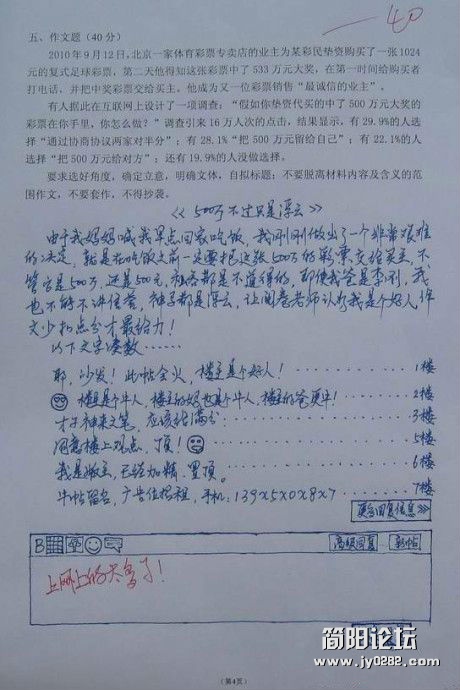 -40
五、作文题（40分）
2010年9月12日，北京一家体育彩票专卖店的业主为某彩民垫资购买了一张1024
元的复式足球彩票，第二天他得知这张彩票中了533万元大奖，在第一时间给购买者
打电话，并把中奖彩票交给买主，他成为又一位彩票销售“最诚信的业主”。
有人据此在互联网上设计了一项调查：“假如你垫资代买的中了500万元大奖的
彩票在你手里，你怎么做？”调查引来16万人次的点击，结果显示，有29.9%的人选
择“通过协商协议两家对半分”；有28.1%“把500万元留给自己”；有22.1%的人
选择“把500万元给对方”；还有19.9%的人没做选择。
要求选好角度，确定立意，明确文体，自拟标题；不要脱离材料内容及含义的范
围作文，不要套作，不得抄袭。
《500万不过只是浮云》
由于我妈妈喊我早点回家吃饭，我刚刚做出了一个非常艰难
的决定，就是在吃饭之前一定要把这张500万的彩票交给买主，不
管它是500万，还是500元，私吞都是不道德的，即便我爸是李刚，我
也不能不讲信誉，神马都是浮云，让阅卷老师认为我是个好人，作
文少扣点分才最给力！
以下文字凑数……
耶，沙发！此帖会火，楼主是个好人！……1楼
楼主是个牛人，楼主的妈也是个牛人，楼主的爸更牛！……2楼
才子神来文笔，应该给满分……3楼
同意楼上观点，顶！……5楼
我是搬主，已经加精，置顶。……6楼
牛帖留名，广告位招租，手机：139x5x0x8x7……7楼
更多回复信息>>
B
高级回复
新帖
上网上的太多了！
（第4页）
简阳论坛
www.jy0282.com